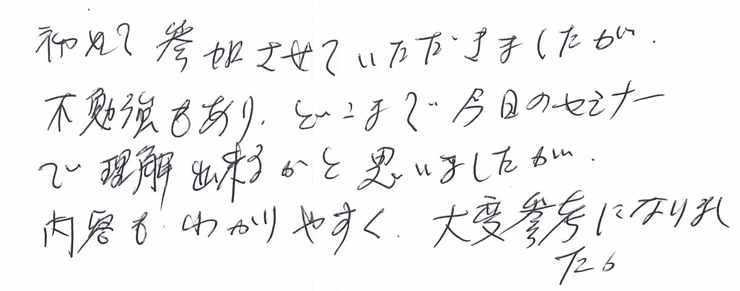 初めて参加させていただきましたが、
不勉強もあり、どこまで今日のセミナー
で理解出来るかと思いましたが、
内容もわかりやすく、大変参考になりまし
た。